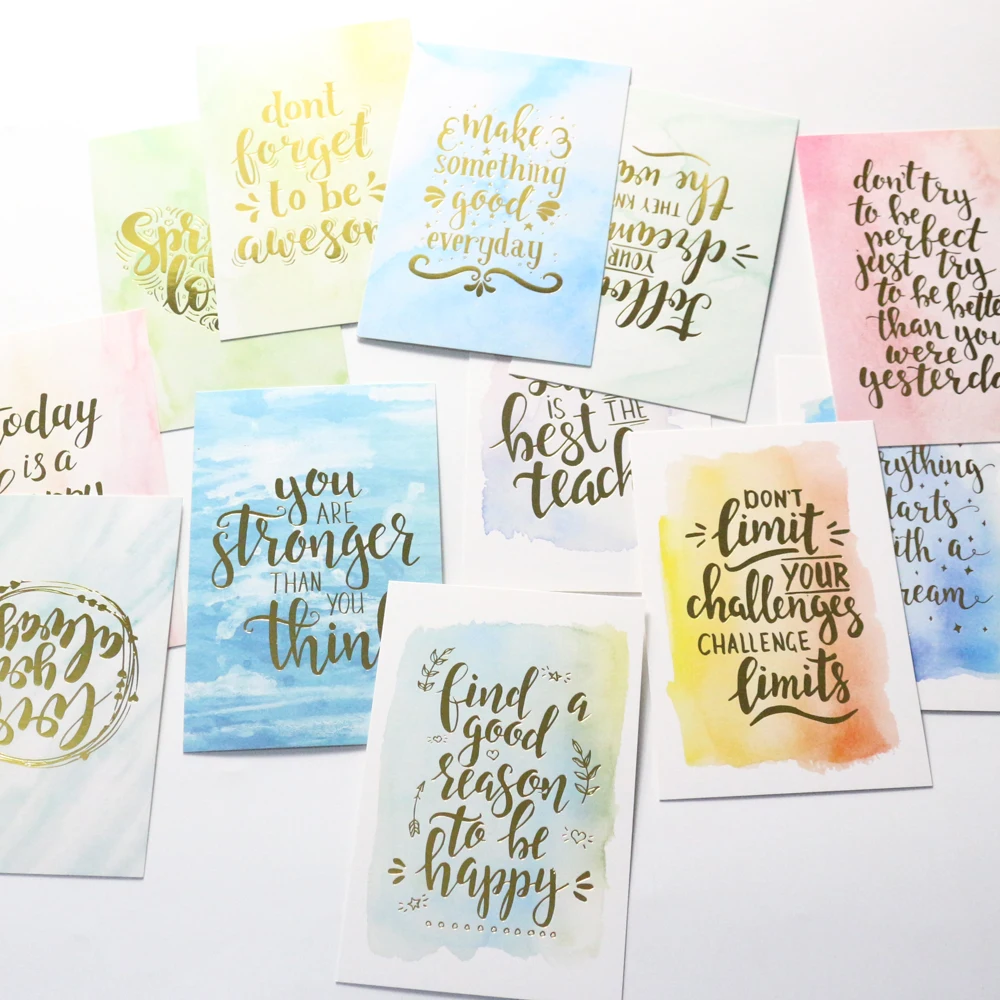 Spr
lo
dont
forget
to be
aweso
make
something
good
everyday
Follo
YOUR
dream
THEY KN
the wa
don't try
to be
perfect
just try
to be bette
than you
were
yesterda
today
is a
happy
you
ARE
stronger
THAN YOU
thin
IS THE
best
teach
DON'T
limit
YOUR
challenges
CHALLENGE
limits
rything
tarts
ith a
ream
Lov
you
alway
find a
good
reason
to be
happy